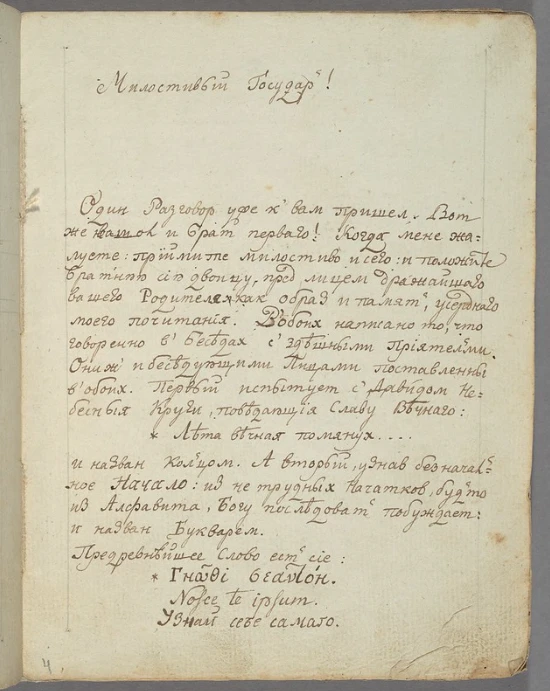 Милостивый Государь!
Один Разговор уже к вам пришел. Вот
же и брат перваго! Когда мене жа-
луете: прiймите милостиво и сего: и положите
братню сiю двоицу, пред лицем дражайшаго
вашего Родителя как образ и память, усерднаго
моего почитанiя. В обоих написано то, что
говоренно в беседах с здѣшными Прiятельми.
Они ж и бесѣдующими Лицами поставленны
в обоих. Первый испытует с Давидом Не-
бесныя Круги, повѣдающiя Славу Вѣчнаго:
* Лѣта вѣчная помянух....
и назван Колцом. А вторый, узнав безначал-
ное Начало: из не трудных Начатков, будьто
из Алфавита, Богу послѣдовать побуждает:
и назван Букварем.
Предревнѣйшее Слово есть сiе:
* Γνῶθι σεαυτόν.
Nosce te ipsum.
Узнай себе самаго.
4